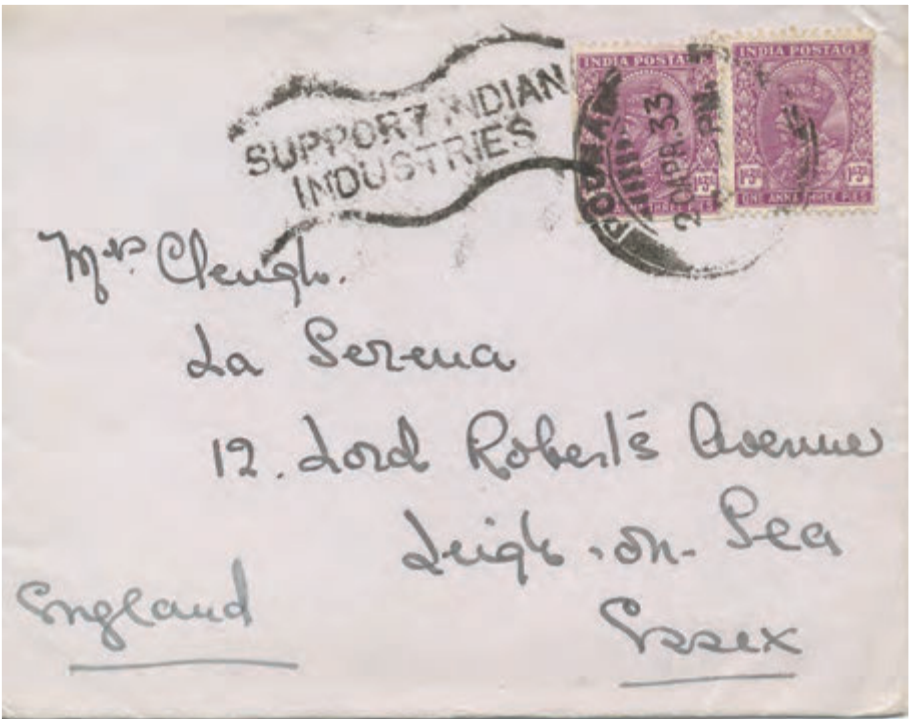 SUPPORT INDIAN
INDUSTRIES
INDIA POSTAGE
INDIA POSTAGE
POONA
20 APR. 33
PM
THREE PIES
ONE ANNA THREE PIES
Mrs. Clengh.
La Serena
12. Lord Robert's Avenue
Leigh-on-Sea
Essex
England